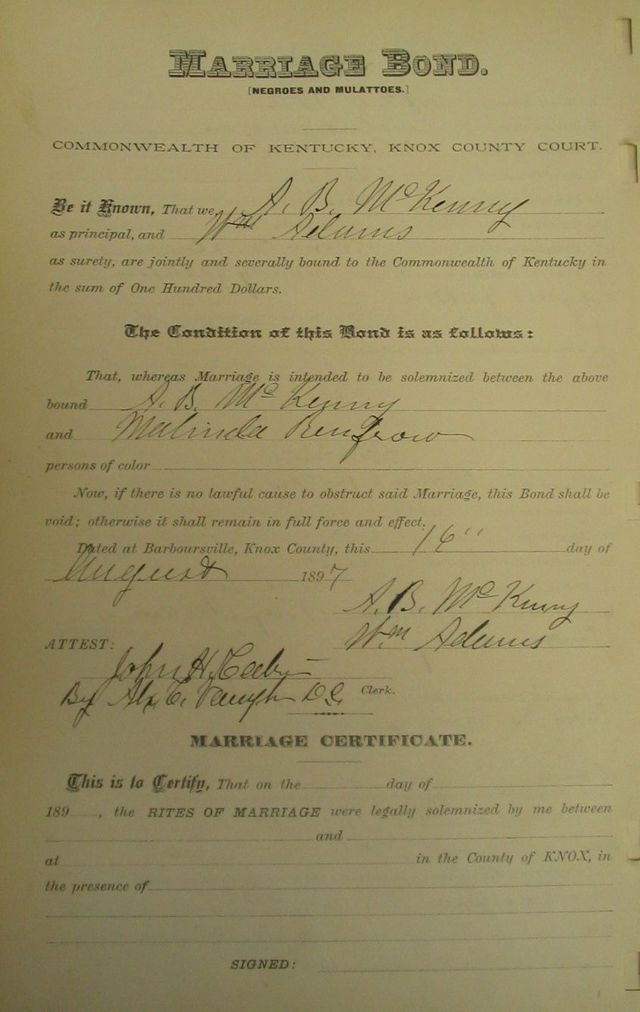 MARRIAGE BOND.
[NEGROES AND MULATTOES.]
COMMONWEALTH OF KENTUCKY, KNOX COUNTY COURT.
Be it Known, That we, A. B. McKenny
as principal, and Wm Adams
as surety, are jointly and severally bound to the Commonwealth of Kentucky in
the sum of One Hundred Dollars.
The Condition of this Bond is as follows:
That, whereas Marriage is intended to be solemnized between the above
bound A. B. McKenny
and Malinda Renfrow
persons of color
Now, if there is no lawful cause to obstruct said Marriage, this Bond shall be
void; otherwise it shall remain in full force and effect.
Dated at Barboursville, Knox County, this 16" day of
August 1897
A. B. McKenny
ATTEST: Wm Adams
John H.
By C. D.C. Clerk.
MARRIAGE CERTIFICATE.
This is to Certify, That on the day of
189 , the RITES OF MARRIAGE were legally solemnized by me between
and
at in the County of KNOX, in
the presence of
SIGNED: